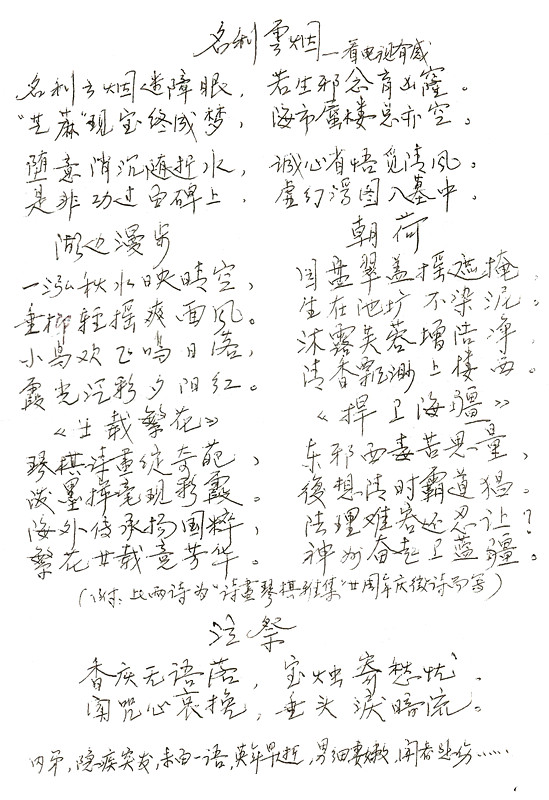 名利雲烟—看电视有感
名利云烟迷障眼，若生邪念育幽窿。
“芝蔴”现宝终成梦，海市蜃楼总亦空。
堕意消沉随折水，诚心省悟觅清风。
是非功过由碑上，虚幻浮图入墓中。
湖边漫步
一泓秋水映晴空，
垂柳轻摇爽面风。
小鸟欢飞鸣日落，
霞光泛彩夕阳红。
朝荷
圆盘翠盖摇遮掩，
生在池坊不染泥。
沐露芙蓉增洁净，
清香飘渺上楼西。
《廿载繁花》
琴棋诗画绽奇葩，
泼墨挥毫现彩霞。
海外传承扬国粹，
繁花廿载竟芳华。
《捍卫海疆》
东邪西毒苦思量，
复想清时霸道猖。
法理难容还忍让？
神州奋起卫蓝疆。
（附：此两诗为“诗画琴棋雅集”廿周年庆徵诗而写）
泣祭
香灰无语落，宝烛寄愁忧。
闻咒心哀挽，垂头淚暗流。
内弟，隐疾突发，未留一语，英年早逝，男细妻嫩，闻者悲伤……